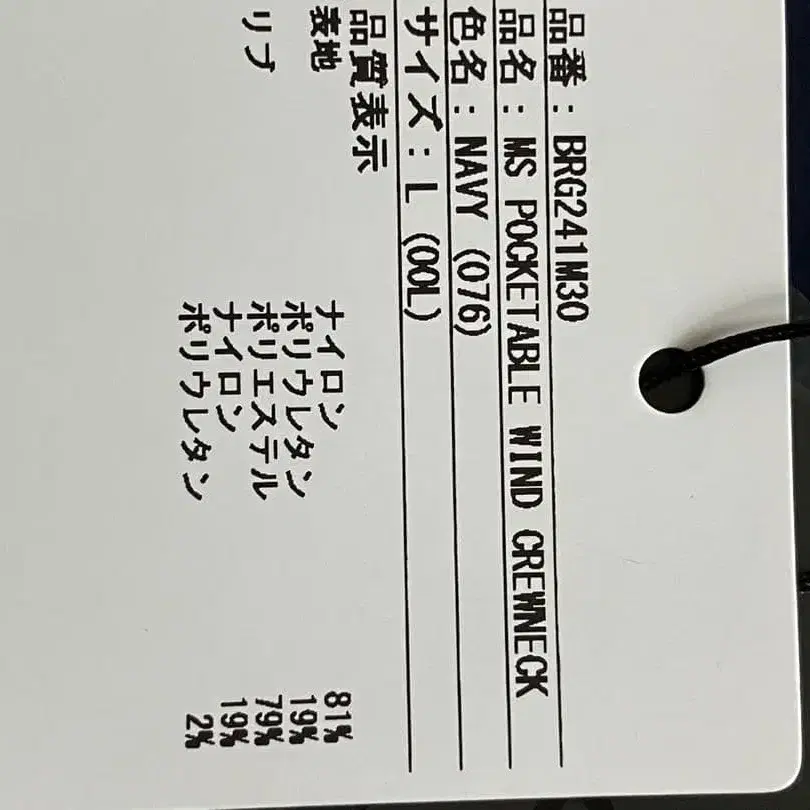 品番：BRG241M30
品名：MS POCKETABLE WIND CREWNECK
色名：NAVY (076)
サイズ：L (00L)
品質表示
表地 ナイロン 81%
ポリウレタン 19%
リブ ポリエステル 79%
ナイロン 19%
ポリウレタン 2%